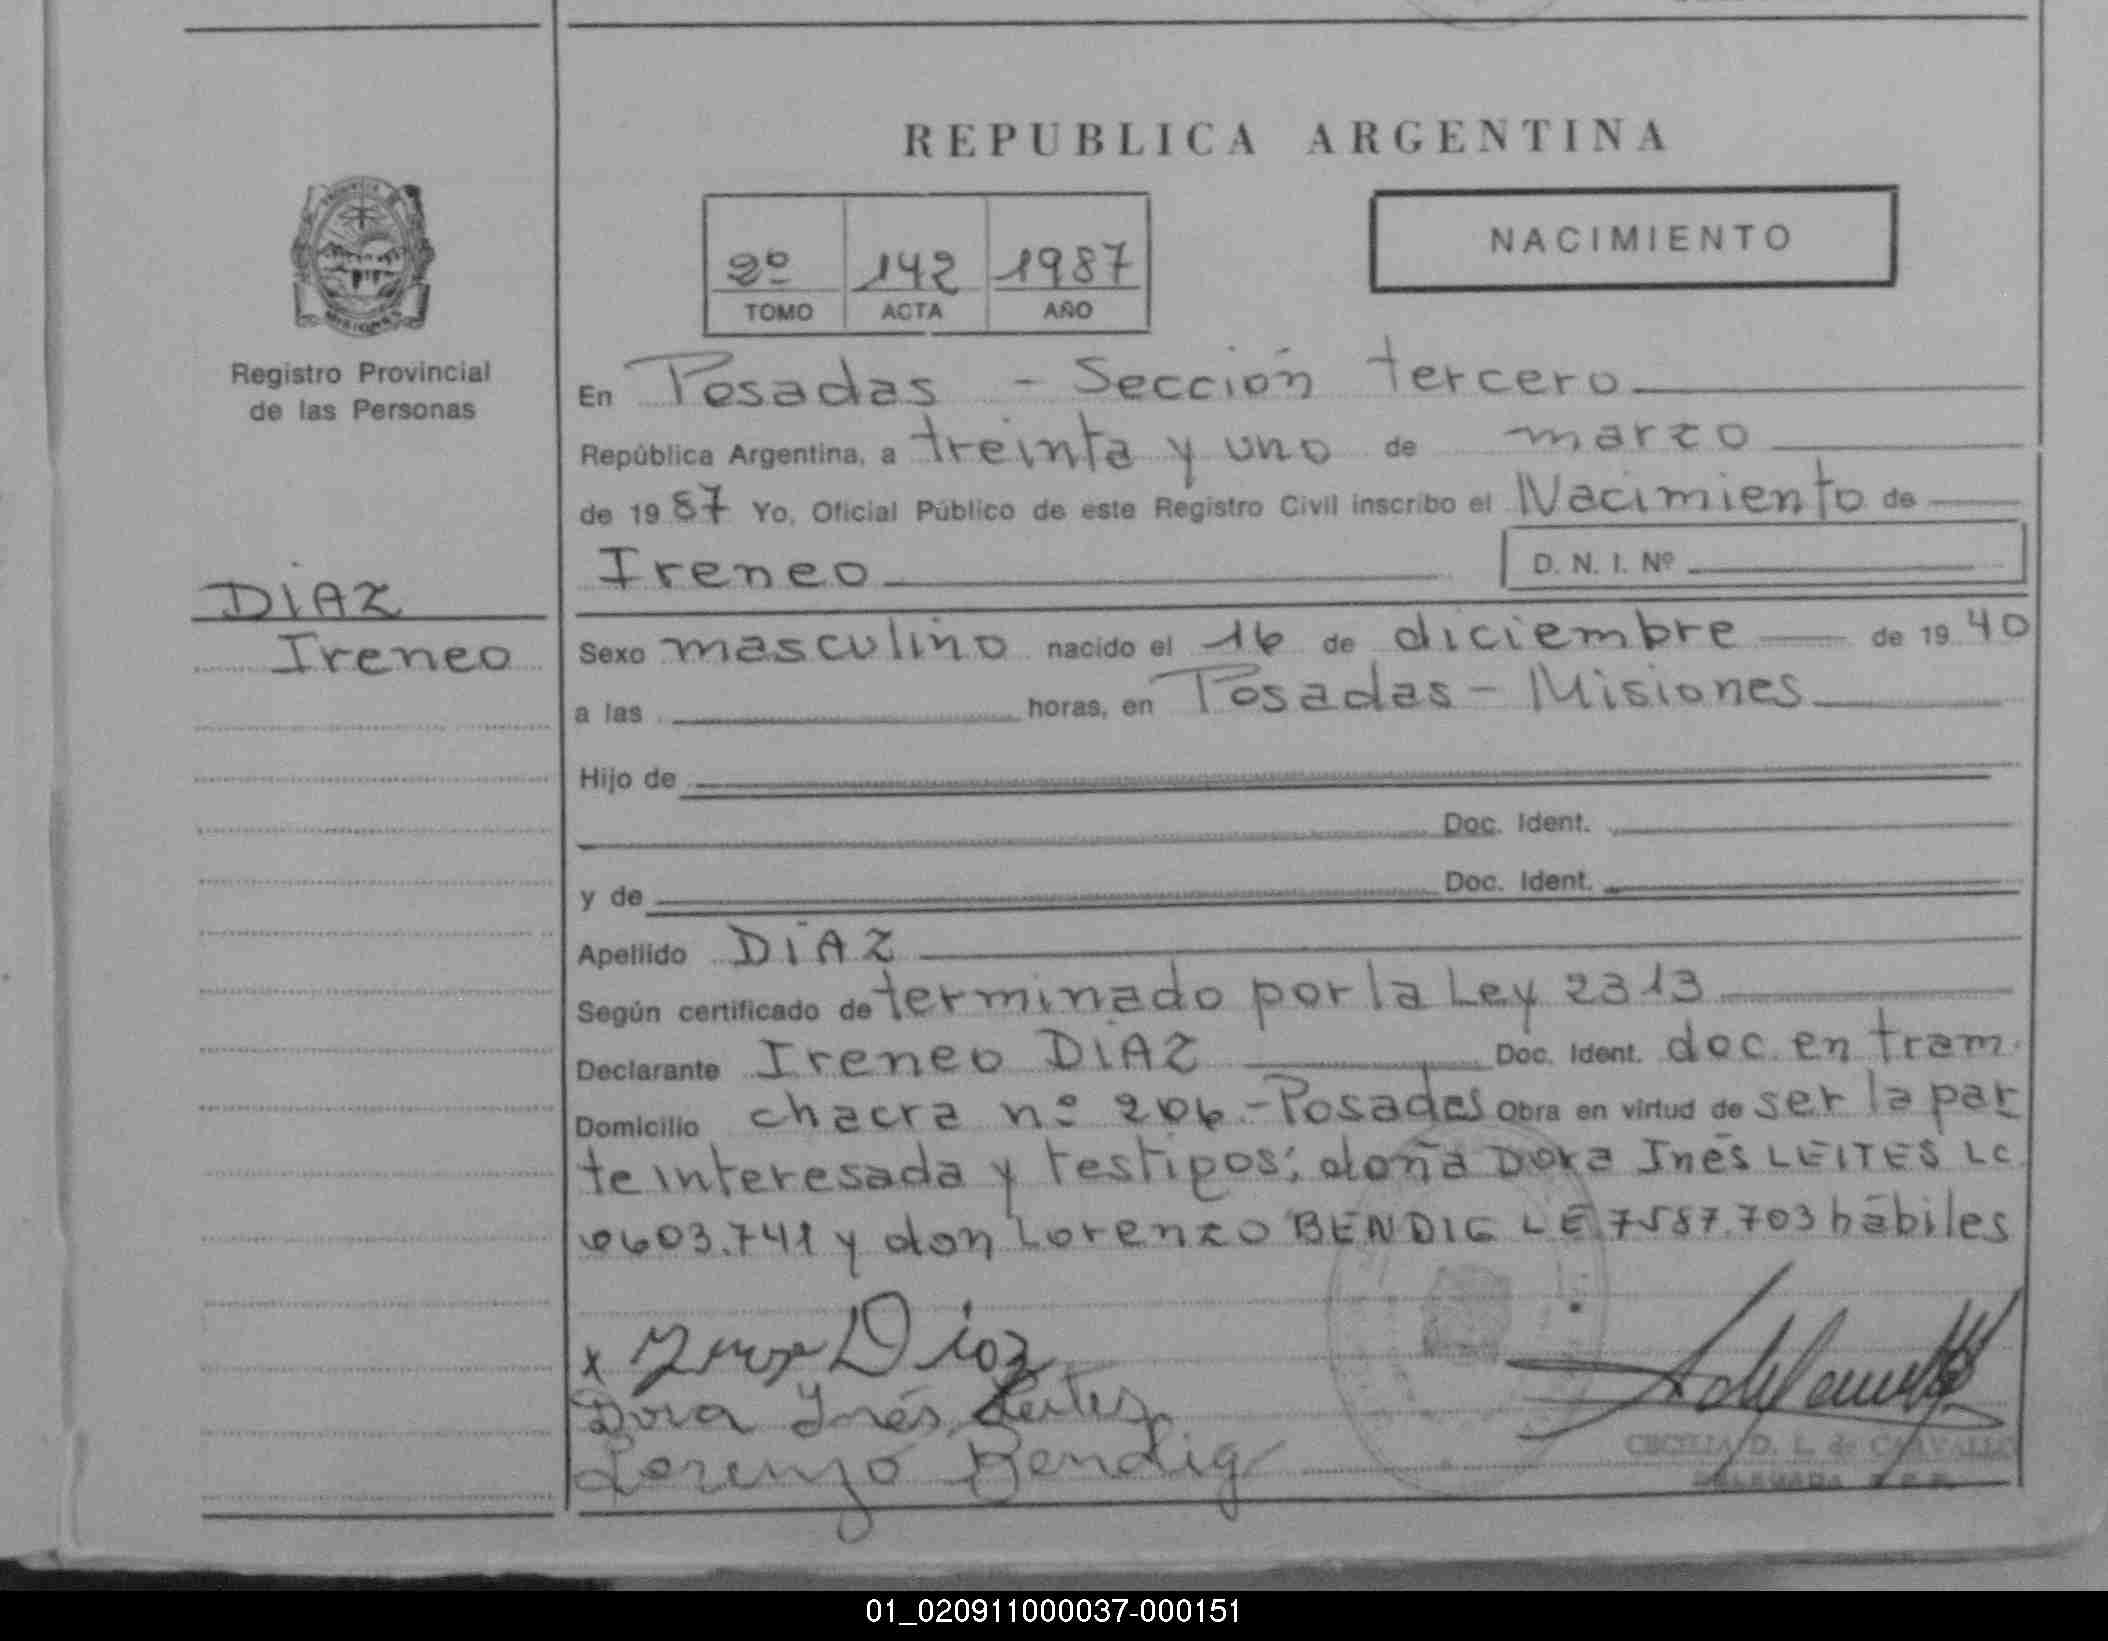 REPUBLICA ARGENTINA
NACIMIENTO
2º 142 1987
TOMO ACTA AÑO
MISIONES
Registro Provincial
de las Personas
En Posadas - Sección tercero
República Argentina, a treinta y uno de marzo
de 1987 Yo, Oficial Público de este Registro Civil inscribo el Nacimiento de
Ireneo D. N. I. Nº
DIAZ
Ireneo
Sexo masculino nacido el 16 de diciembre de 1940
a las horas, en Posadas - Misiones
Hijo de
Doc. Ident.
y de Doc. Ident.
Apellido DIAZ
Según certificado de terminado por la Ley 2313
Declarante Ireneo DIAZ Doc. Ident. doc. en tram.
Domicilio chacra nº 206.- Posadas Obra en virtud de ser la par
te interesada y testigos; doña Dora Inés LEITES LC
6603.741 y don Lorenzo BENDIG LE 7587.703 hábiles
x Díaz
Dora Inés Leites
Lorenzo Bendig
CECILIA D. L. de CARVALLO
DELEGADA
01_020911000037-000151